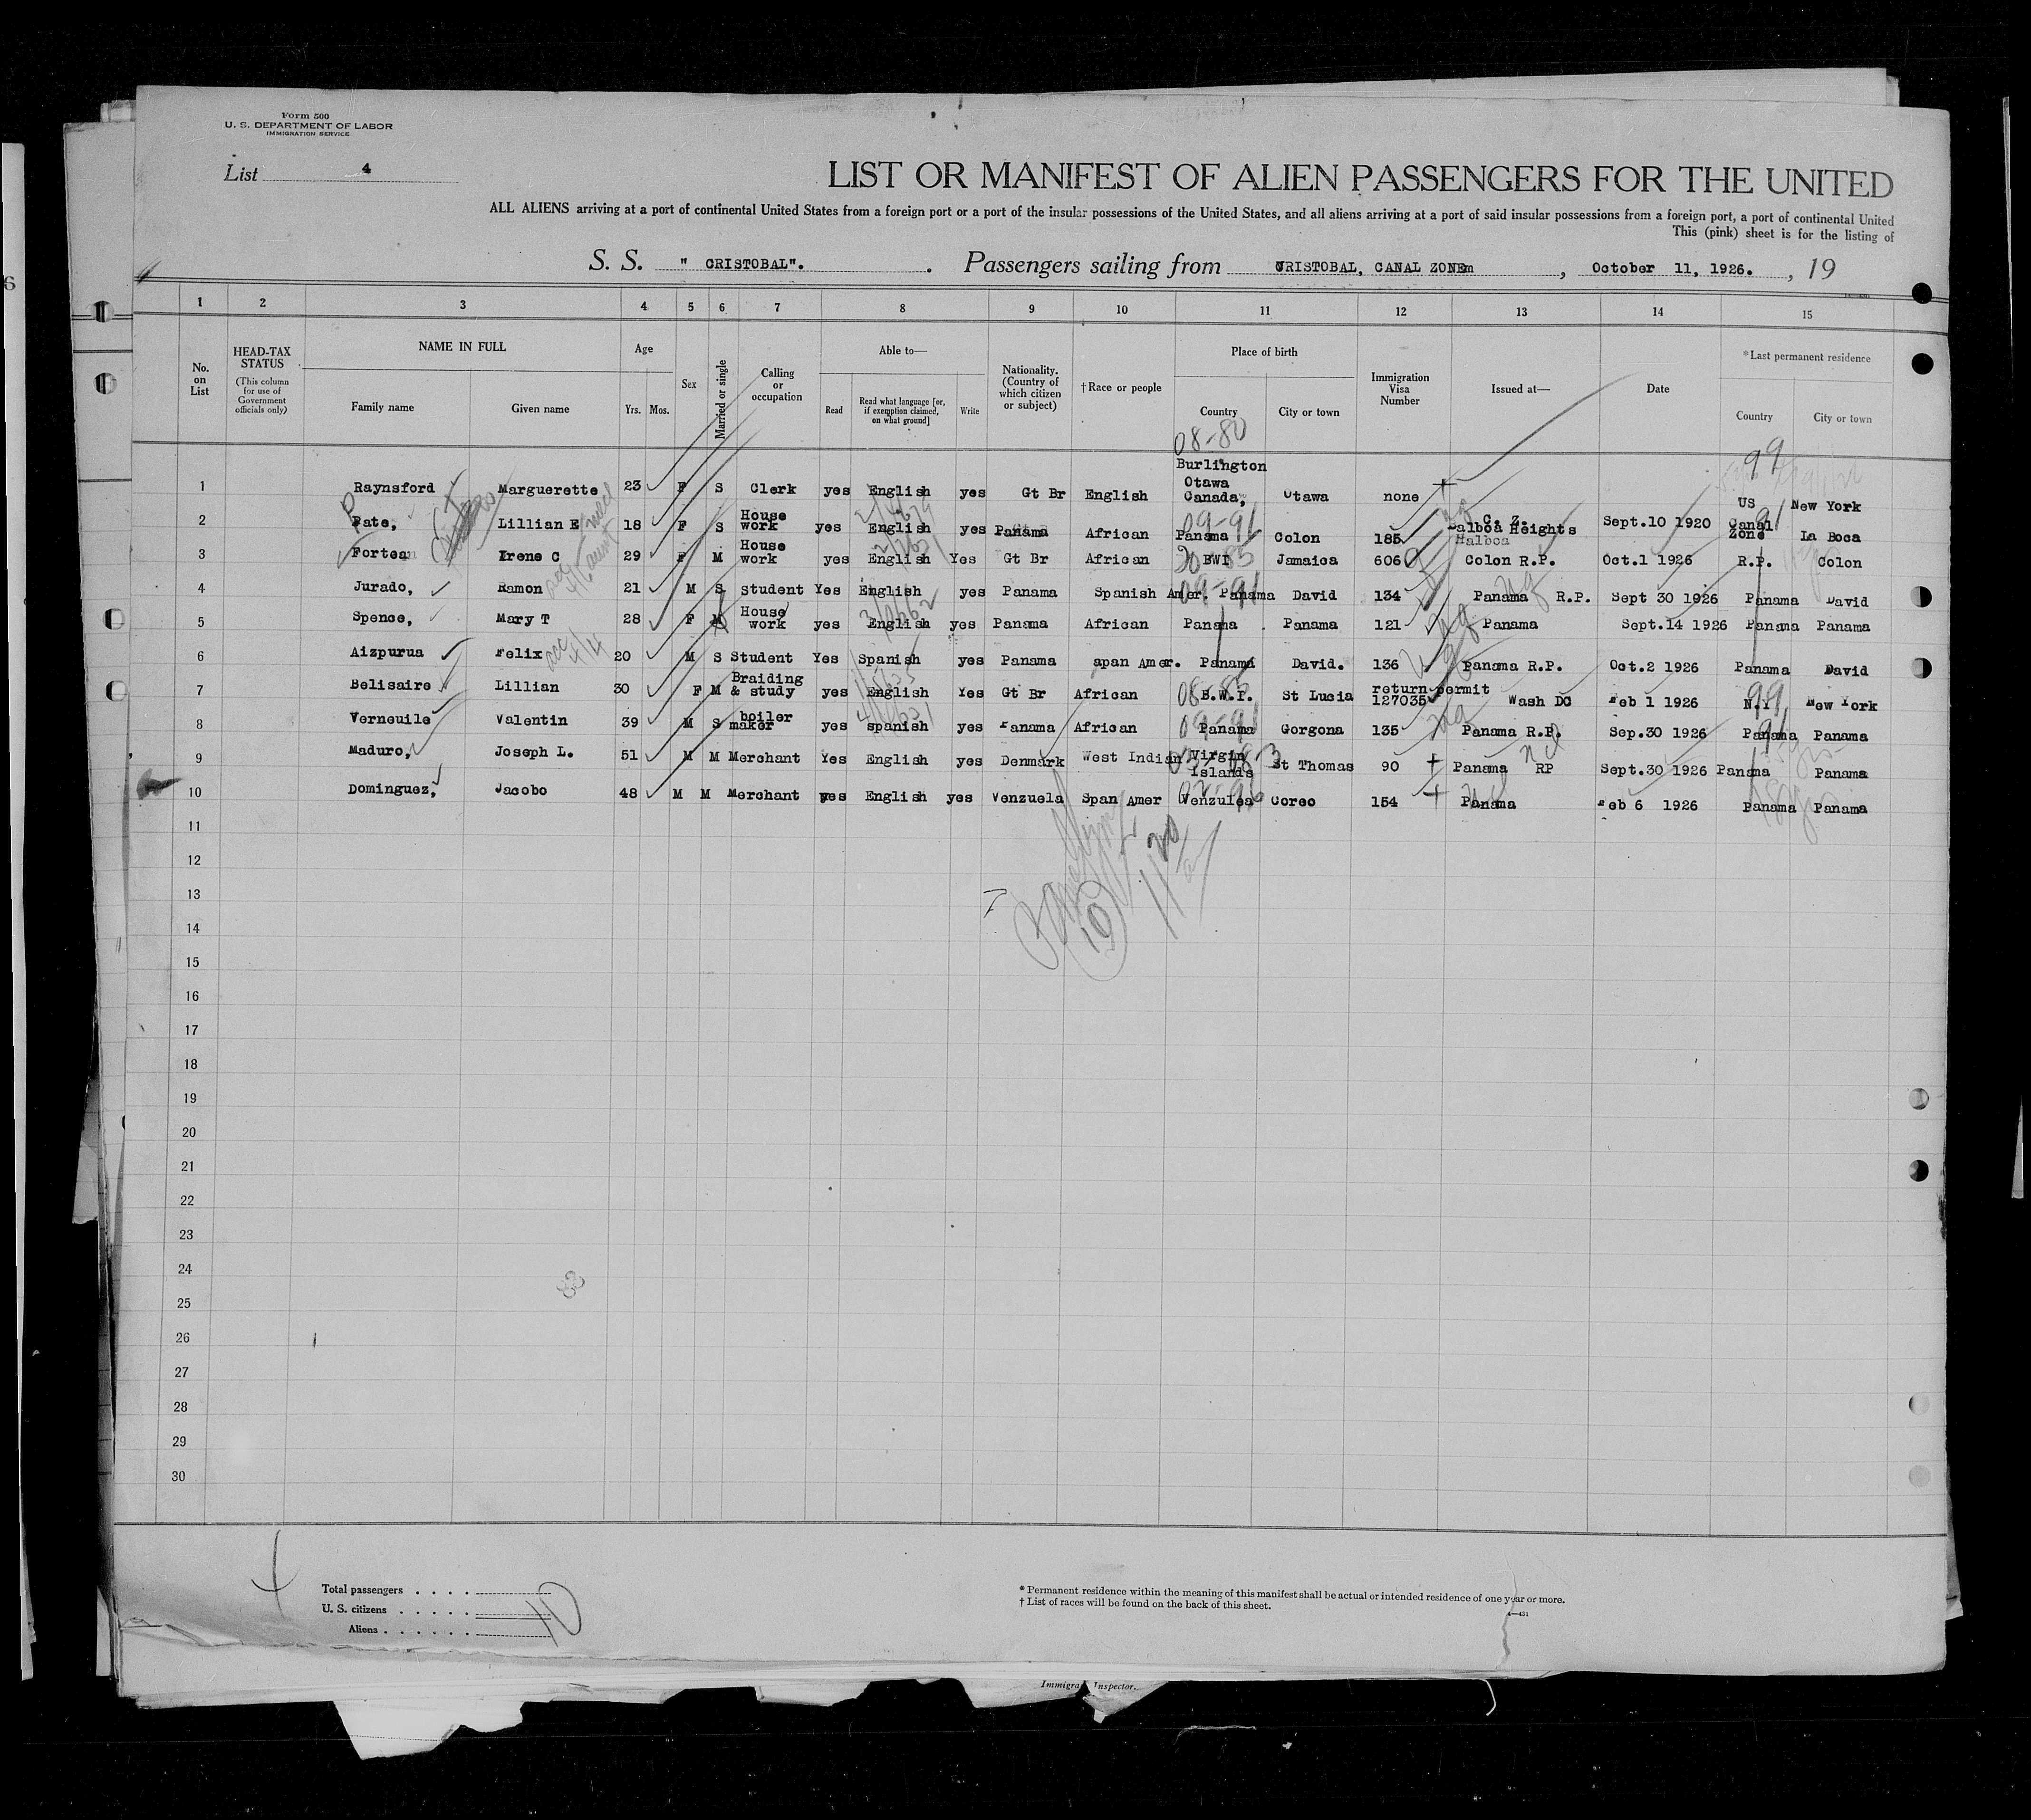 Form 500
U. S. DEPARTMENT OF LABOR
IMMIGRATION SERVICE
List 4
LIST OR MANIFEST OF ALIEN PASSENGERS FOR THE UNITED
ALL ALIENS arriving at a port of continental United States from a foreign port or a port of the insular possessions of the United States, and all aliens arriving at a port of said insular possessions from a foreign port, a port of continental United
This (pink) sheet is for the listing of
S. S. " CRISTOBAL". Passengers sailing from CRISTOBAL, CANAL ZONEm, October 11, 1926. , 19
1 2 3 4 5 6 7 8 9 10 11 12 13 14 15
No. on List HEAD-TAX STATUS (This column for use of Government officials only) NAME IN FULL Family name Given name Age Yrs. Mos. Sex Married or single Calling or occupation Able to— Read Read what language [or, if exemption claimed, on what ground] Write Nationality. (Country of which citizen or subject) †Race or people Place of birth Country City or town Immigration Visa Number Issued at— Date *Last permanent residence Country City or town
08-80 99
1 Raynsford Marguerette 23 F S Clerk yes English yes Gt Br English Burlington Otawa Canada, Otawa none US New York
2 Pate, Lillian E 18 F S House work yes English yes Panama African 09-91 Panama Colon 185 C. Z. Balboa Heights Balboa Sept.10 1920 Canal Zone La Boca
3 Fortean Irene C 29 F M House work yes English Yes Gt Br African BWI Jamaica 606 Colon R.P. Oct.1 1926 R.P. Colon
4 Jurado, Ramon 21 M S Student Yes English yes Panama Spanish Amer. 09-91 Panama David 134 Panama R.P. Sept 30 1926 Panama David
5 Spence, Mary T 28 F M House work yes English yes Panama African Panama Panama 121 Panama Sept.14 1926 Panama Panama
6 Aizpurua Felix 20 M S Student Yes Spanish yes Panama Span Amer. Panama David. 136 Panama R.P. Oct.2 1926 Panama David
7 Belisaire Lillian 30 F M Braiding & study yes English Yes Gt Br African B.W.I. St Lucia return permit 127035 Wash DC Feb 1 1926 99 N.Y New York
8 Verneuile Valentin 39 M S boiler maker yes spanish yes Panama African 09-91 Panama Gorgona 135 Panama R.P. Sep.30 1926 Panama Panama
9 Maduro, Joseph L. 51 M M Merchant Yes English yes Denmark West Indian Virgin Islands St Thomas 90 Panama RP Sept.30 1926 Panama Panama
10 Dominguez, Jacobo 48 M M Merchant yes English yes Venzuela Span Amer Venzulea Coreo 154 Panama Feb 6 1926 Panama Panama
11
12
13
14
15
16
17
18
19
20
21
22
23
24
25
26
27
28
29
30
Total passengers . . . .
U. S. citizens . . . . . 10
Aliens . . . . . .
* Permanent residence within the meaning of this manifest shall be actual or intended residence of one year or more.
† List of races will be found on the back of this sheet.
Inspector.